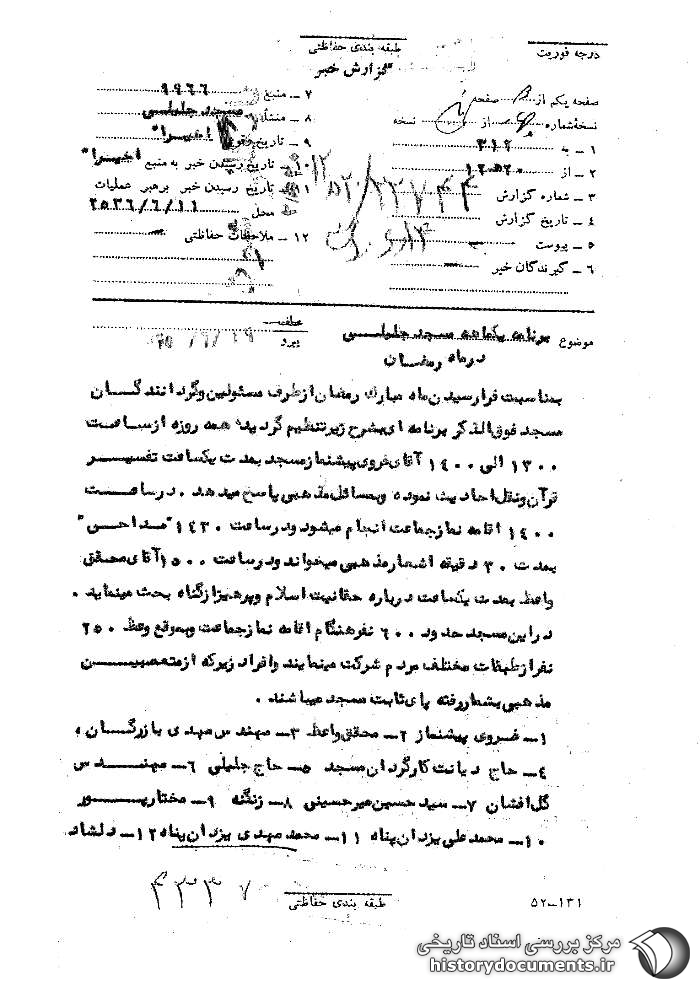 درجه فوریت
طبقه بندی حفاظتی
گزارش خبر
صفحه یکم از صفحه
نسخه شماره از نسخه
۱ ـ به ۳۱۲
۲ ـ از ۱۲ ه‍ ۲۰
۳ ـ شماره گزارش
۴ ـ تاریخ گزارش
۵ ـ پیوست
۶ ـ گیرندگان خبر
۷ ـ منبع ۹۹۶۶
۸ ـ منشأ مسجد جلیلی
۹ ـ تاریخ وقوع اخیرا"
۱۰ ـ تاریخ رسیدن خبر به منبع اخیرا"
۱۱ ـ تاریخ رسیدن خبر برهبر عملیات
محل ۲۵۳۶/۶/۱۱
۱۲ ـ ملاحظات حفاظتی
موضوع برنامه یکماهه مسجد جلیلی
در ماه رمضان
عطف
پیرو
بمناسبت فرارسیدن ماه مبارک رمضان از طرف مسئولین وگردانندگان
مسجد فوق الذکر برنامه ای بشرح زیر تنظیم گردیده همه روزه از ساعت
۱۳۰۰ الی ۱۴۰۰ آقای غروی پیشنماز مسجد بمدت یکساعت تفسیر
قرآن ونقل احادیث نموده وبمسائل مذهبی پاسخ میدهد . در ساعت
۱۴۰۰ اقامه نماز جماعت انجام میشود ودر ساعت ۱۴۳۰ "مداحی"
بمدت ۳۰ دقیقه اشعار مذهبی میخواند ودر ساعت ۱۵۰۰ آقای محقق
واعظ بمدت یکساعت درباره حقانیت اسلام وپرهیز از گناه بحث مینماید .
در این مسجد حدود ۶۰۰ نفر هنگام اقامه نماز جماعت وبموقع وعظ ۲۵۰
نفر از طبقات مختلف مردم شرکت مینمایند وافراد زیر که از متعصبین
مذهبی بشمار رفته پای ثابت مسجد میباشند .
۱ـ غروی پیشنماز ۲ـ محقق واعظ ۳ـ مهندس مهدی بازرگان ،
۴ـ حاج دیانت کارگردان مسجد ۵ـ حاج جلیلی ۶ـ مهندس
گل افشان ۷ـ سید حسین میرحسینی ۸ـ زنگنه ۹ـ مختارپور
۱۰ـ محمد علی یزدان پناه ۱۱ـ محمد مهدی یزدان پناه ۱۲ـ دلشاد
طبقه بندی حفاظتی
۵۲-۱۳۱
مرکز بررسی اسناد تاریخی
historydocuments.ir